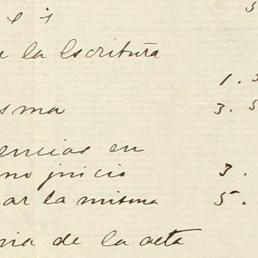 e la Escritura
1.
isma 3.5
encias en
no juicio 3.
ar la misma 5.
ia de la acta